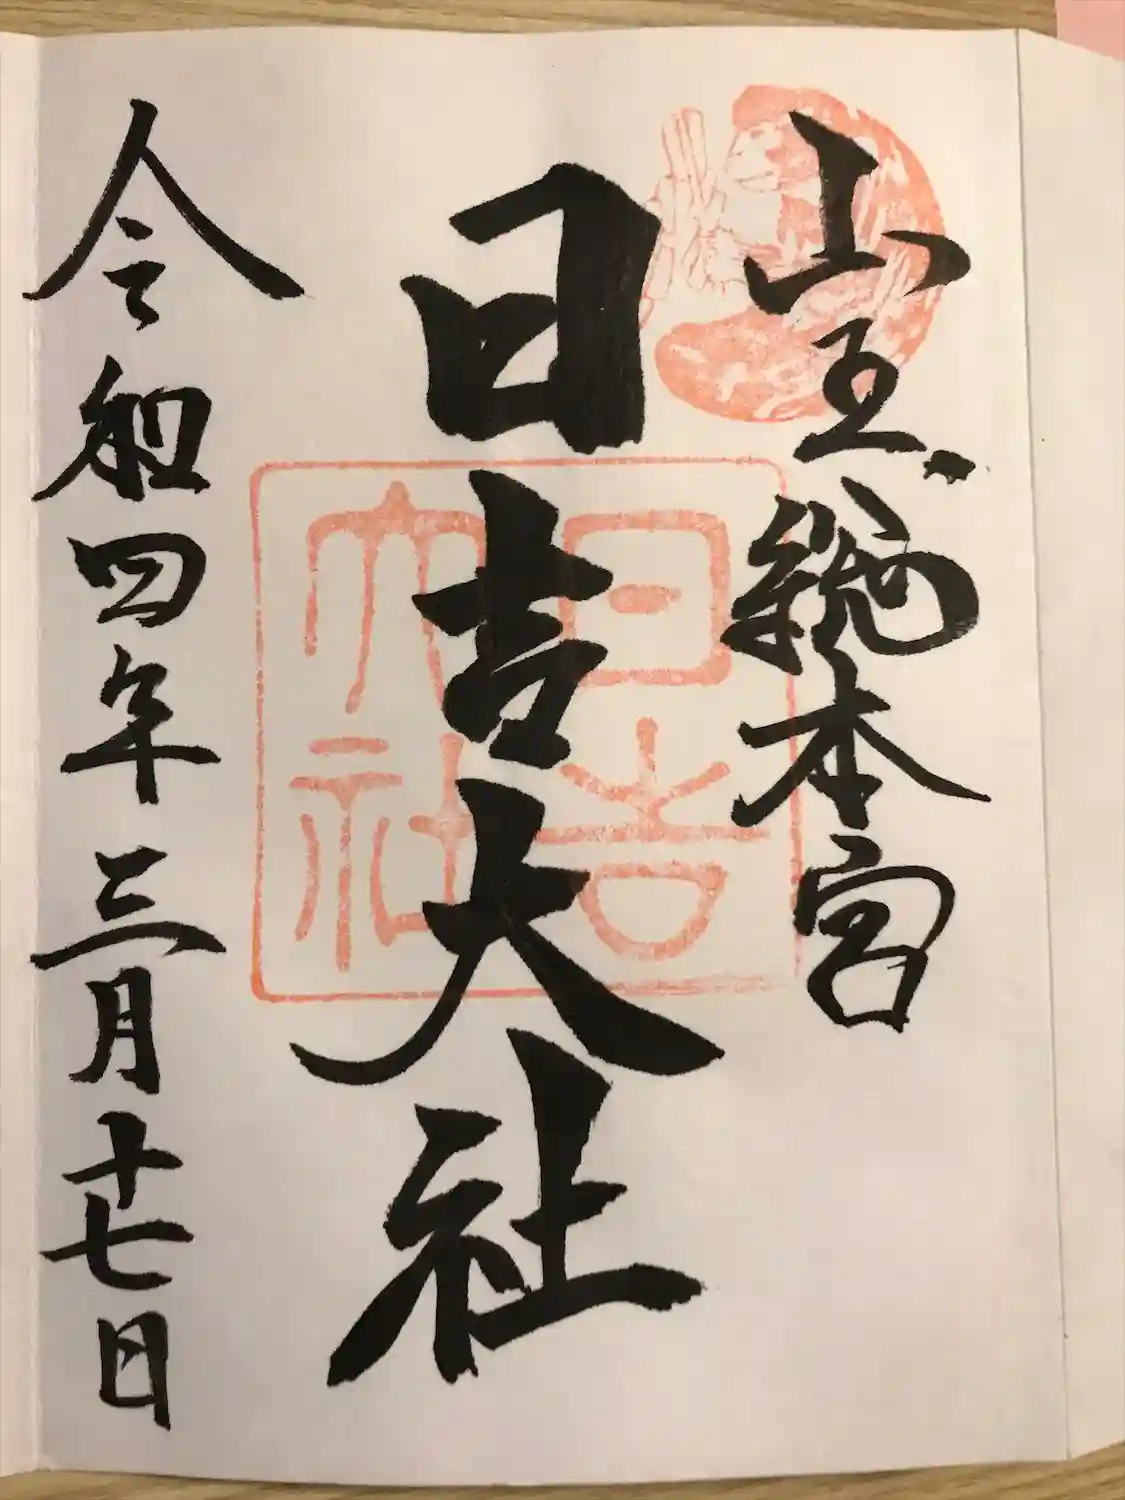 山王総本宮
日吉大社
日吉
大社
令和四年三月十七日